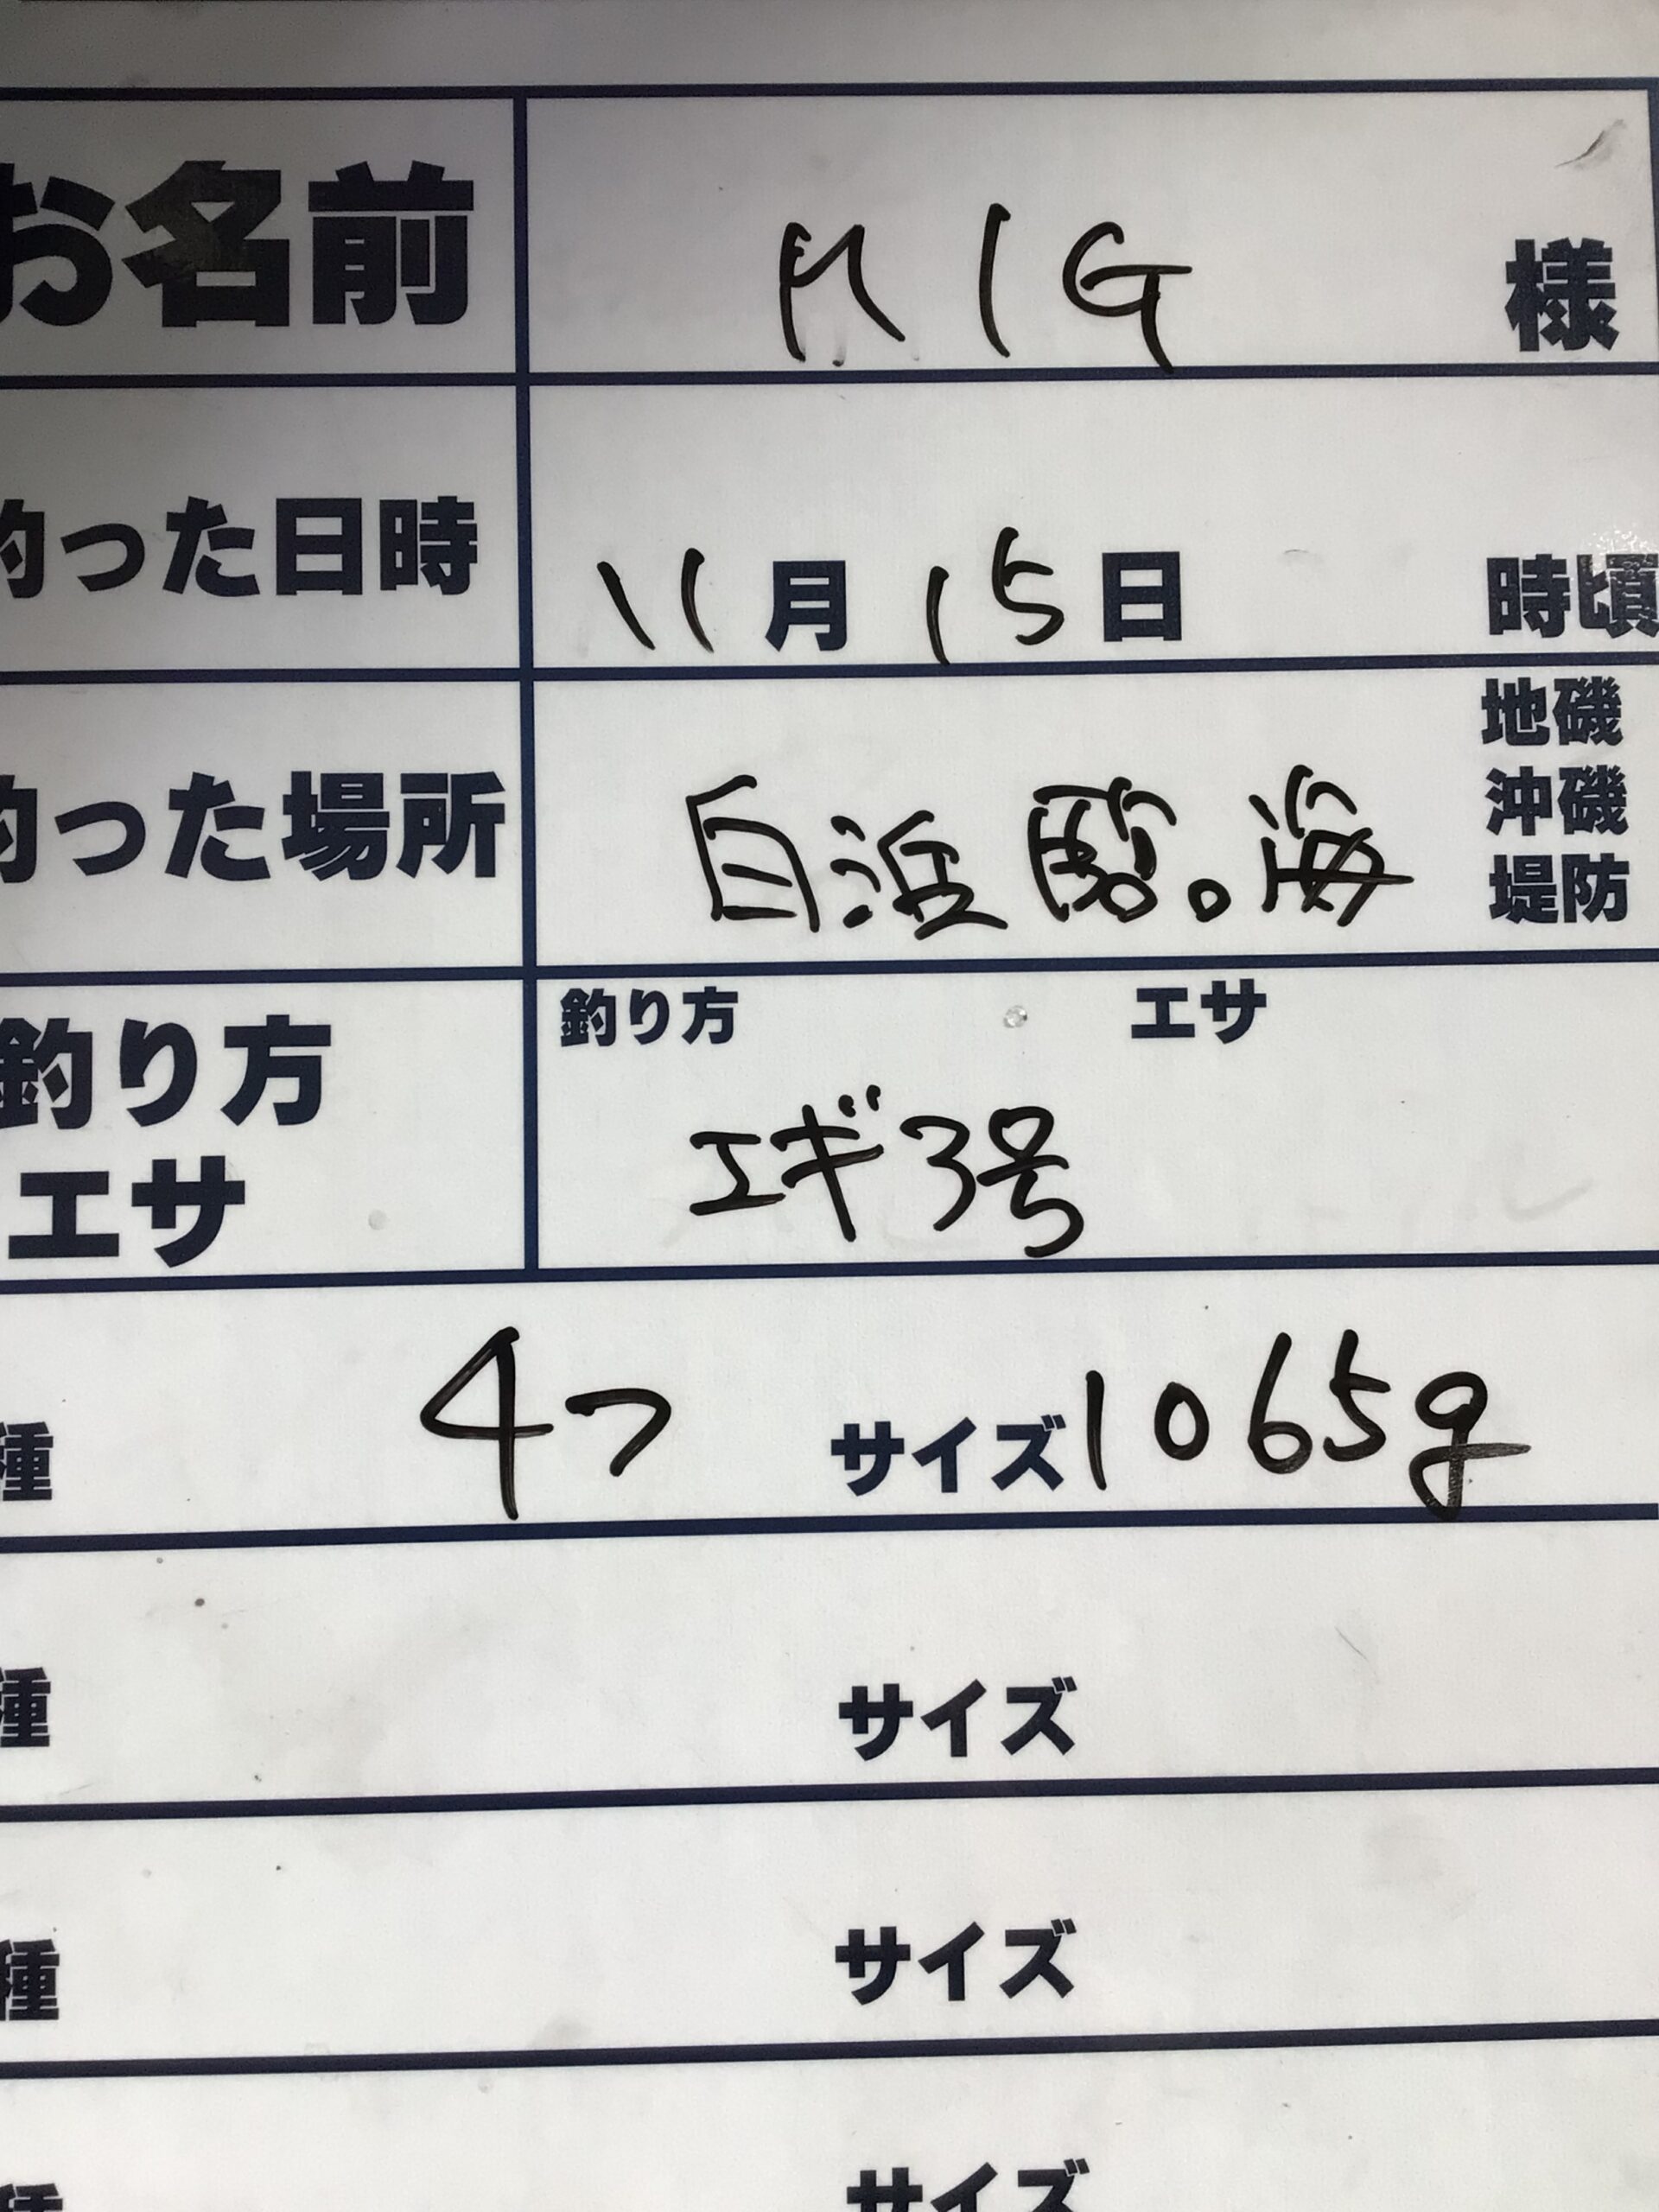 お名前 RIG 様
釣った日時 11月15日 時頃
釣った場所 白浜 臨海 地磯
沖磯
堤防
釣り方 エサ
釣り方
エサ
エギ3号
種 4つ サイズ 1065g
種 サイズ
種 サイズ
種 サイズ